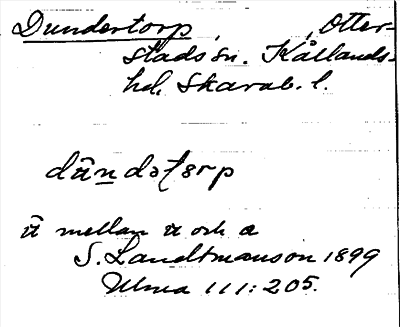 Dundertorp, , Otter-
stads sn. Kållands-
hd, Skarab. l.
dūndətɔrp
ū mellan u och a
S. Landtmanson 1899
Ulma 111:205.